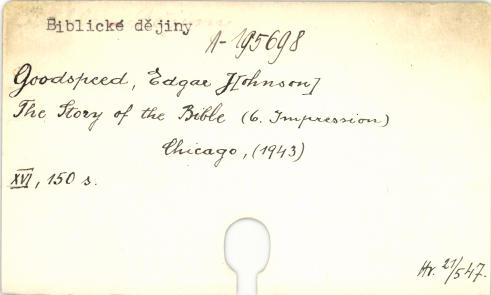 Biblické dějiny
A-195698
Goodspeed, Edgar J[ohnson]
The Story of the Bible (6. Impression)
Chicago, (1943)
XVI, 150 s.
Hr. 21/547.